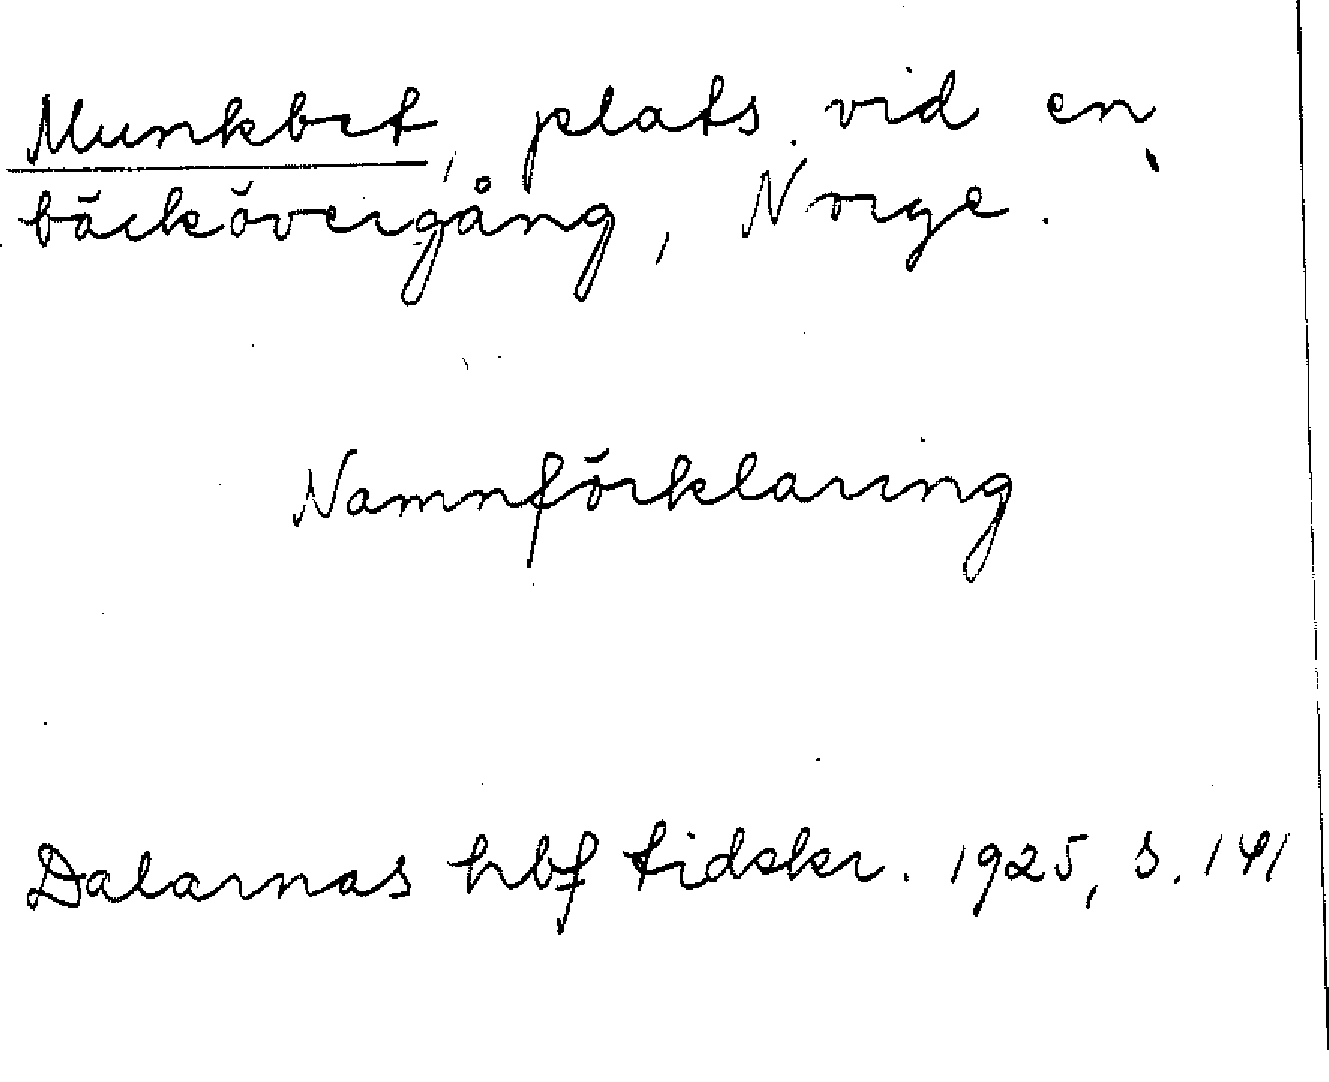 Munkbet, plats vid en
bäckövergång, Norge.
Namnförklaring
Dalarnas hbf tidskr. 1925, s. 141